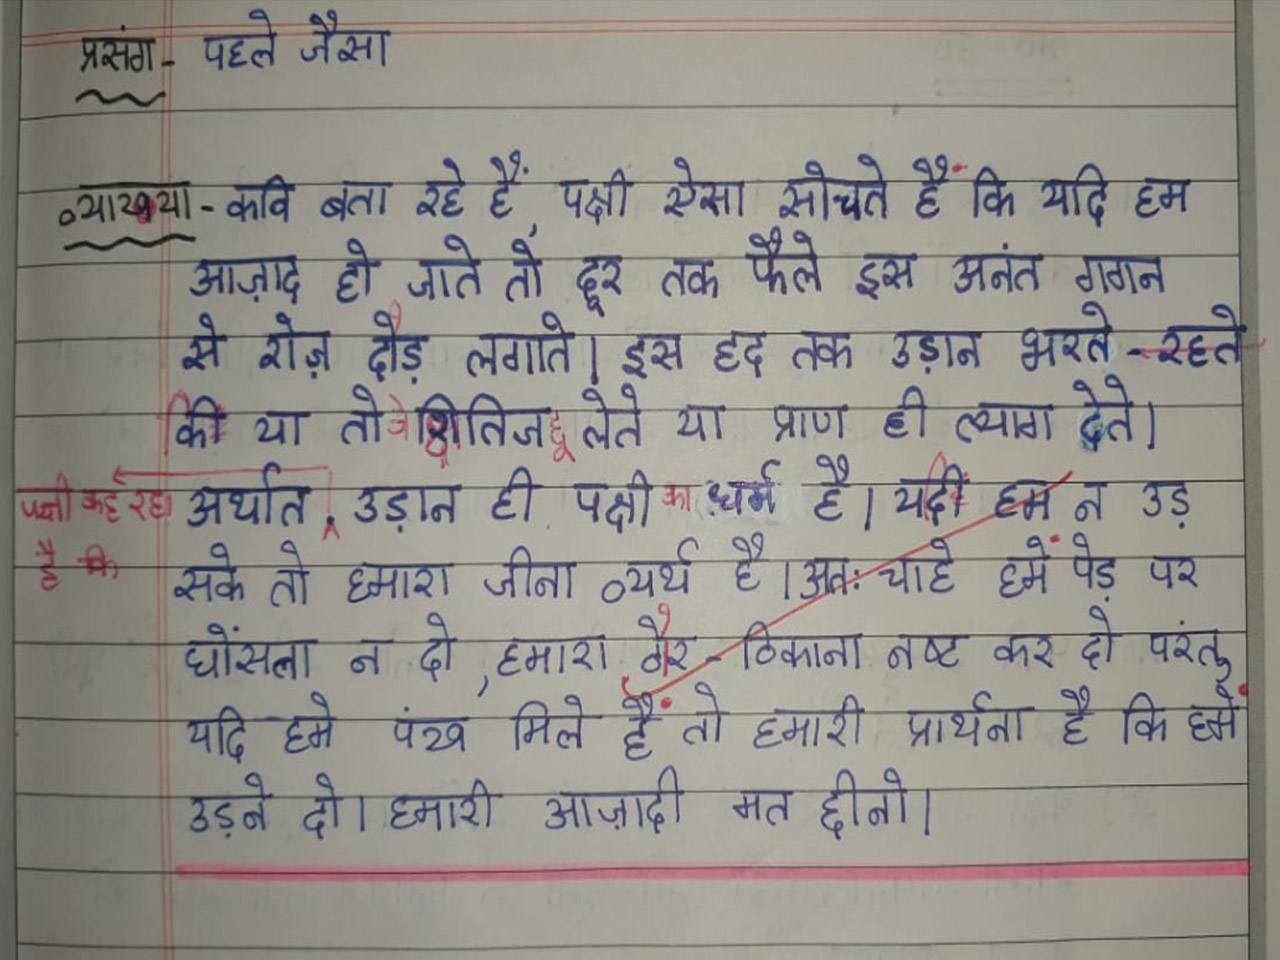 प्रसंग - पहले जैसा
व्याख्या - कवि बता रहे हैं, पक्षी ऐसा सोचते हैं कि यदि हम
आज़ाद हो जाते तो दूर तक फैले इस अनंत गगन
से रोज़ दौड़ लगाते। इस हद तक उड़ान भरते - रहते
कि या तो वे क्षितिज छू लेते या प्राण ही त्याग देते।
पक्षी कह रहा अर्थात, उड़ान ही पक्षी का धर्म है। यदि हम न उड़
है कि सके तो हमारा जीना व्यर्थ है। अतः चाहे हमें पेड़ पर
घोंसला न दो, हमारा ठौर - ठिकाना नष्ट कर दो परंतु
यदि हमे पंख मिले हैं तो हमारी प्रार्थना है कि हमें
उड़ने दो। हमारी आज़ादी मत छीनो।